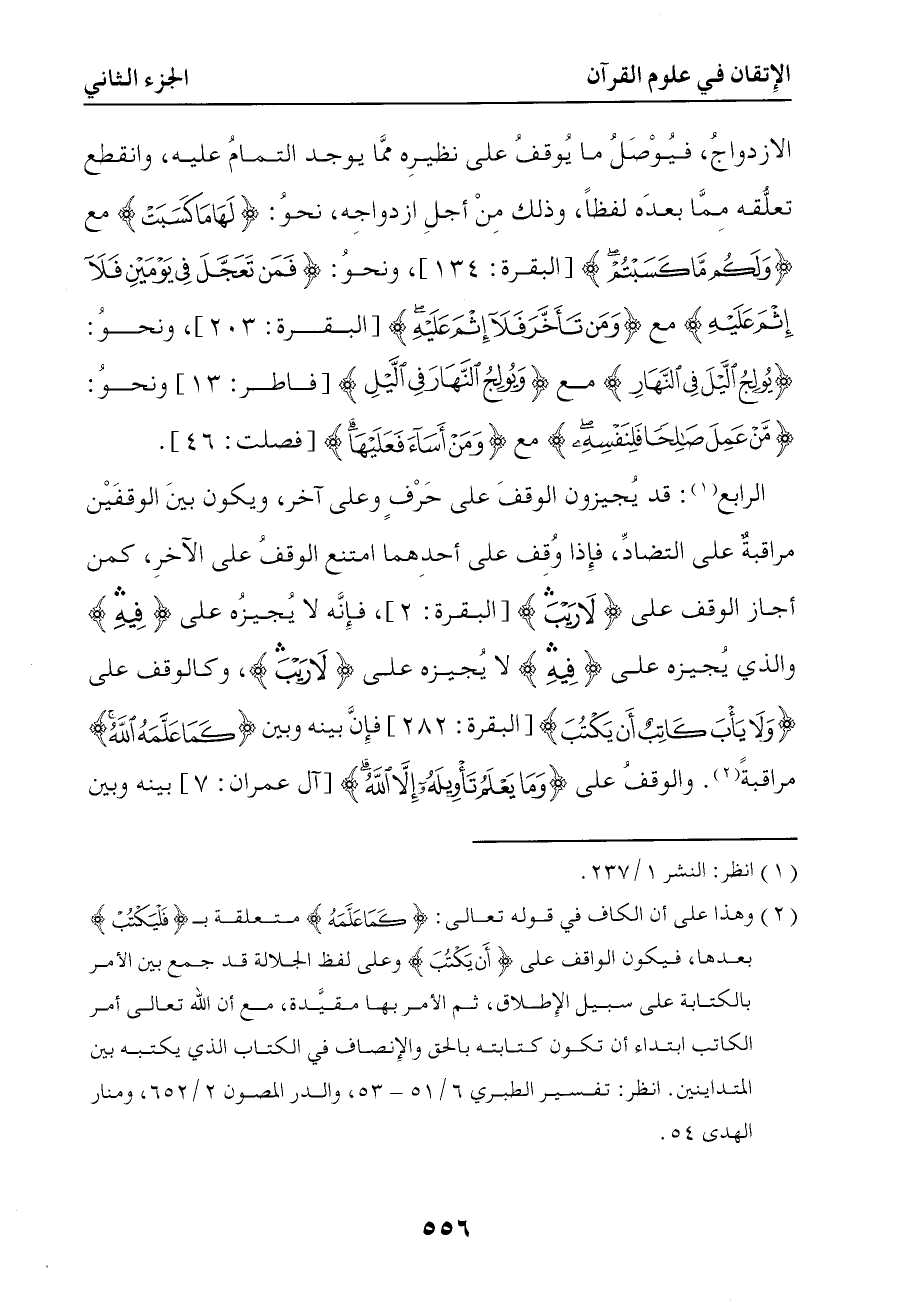 الإتقان في علوم القرآن
الجزء الثاني
الازدواجُ، فيُوْصَلُ ما يُوقفُ على نظيره ممَّا يوجد التمامُ عليه، وانقطع
تعلُّقه ممـَّا بعدَه لفظاً، وذلك منْ أجل ازدواجه، نحوُ: ﴿لَهَا مَا كَسَبَتْ﴾ مع
﴿وَلَكُم مَّا كَسَبْتُمْ ۖ﴾ [البقرة: ١٣٤]، ونحوُ: ﴿فَمَن تَعَجَّلَ فِي يَوْمَيْنِ فَلَآ
إِثْمَ عَلَيْهِ﴾ مع ﴿وَمَن تَأَخَّرَ فَلَآ إِثْمَ عَلَيْهِ ۖ﴾ [البقرة: ٢٠٣]، ونحوُ:
﴿يُولِجُ ٱلَّيْلَ فِي ٱلنَّهَارِ﴾ مع ﴿وَيُولِجُ ٱلنَّهَارَ فِي ٱلَّيْلِ﴾ [فاطر: ١٣] ونحوُ:
﴿مَّنْ عَمِلَ صَٰلِحًا فَلِنَفْسِهِۦ ۖ﴾ مع ﴿وَمَنْ أَسَآءَ فَعَلَيْهَا ۗ﴾ [فصلت: ٤٦].
الرابع(١): قد يُجيزون الوقفَ على حَرْفٍ وعلى آخر، ويكون بينَ الوقفَيْن
مراقبةٌ على التضادِّ، فإذا وُقف على أحدهما امتنع الوقفُ على الآخر، كمن
أجاز الوقف على ﴿لَا رَيْبَ ۛ﴾ [البقرة: ٢]، فإنَّه لا يُجيزُه على ﴿فِيهِ ۛ﴾
والذي يُجيزه على ﴿فِيهِ ۛ﴾ لا يُجيزه على ﴿لَا رَيْبَ ۛ﴾، وكالوقف على
﴿وَلَا يَأْبَ كَاتِبٌ أَن يَكْتُبَ﴾ [البقرة: ٢٨٢] فإنَّ بينه وبين ﴿كَمَا عَلَّمَهُ ٱللَّهُ ۚ﴾
مراقبةً(٢). والوقفُ على ﴿وَمَا يَعْلَمُ تَأْوِيلَهُۥٓ إِلَّا ٱللَّهُ ۗ﴾ [آل عمران: ٧] بينه وبين
(١) انظر: النشر ٢٣٧/١.
(٢) وهذا على أن الكاف في قوله تعالى: ﴿كَمَا عَلَّمَهُ﴾ متعلقة بـ ﴿فَلْيَكْتُبْ﴾
بعدها، فيكون الواقف على ﴿أَن يَكْتُبَ﴾ وعلى لفظ الجلالة قد جمع بين الأمر
بالكتابة على سبيل الإطلاق، ثم الأمر بها مقيَّدة، مع أن الله تعالى أمر
الكاتب ابتداء أن تكون كتابته بالحق والإنصاف في الكتاب الذي يكتبه بين
المتداينين. انظر: تفسير الطبري ٥١/٦ - ٥٣، والدر المصون ٦٥٢/٢، ومنار
الهدى ٥٤.
٥٥٦